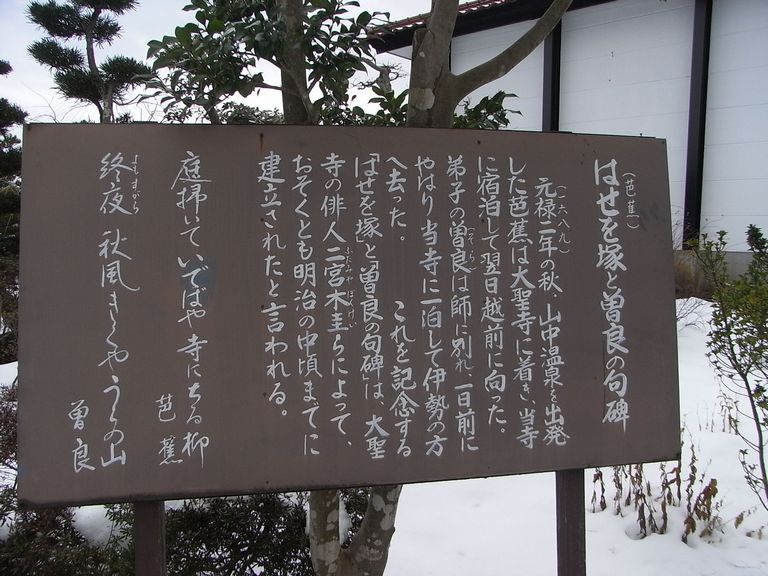 はせを(芭蕉)塚と曽良の句碑
元禄二年(一六八九)の秋、山中温泉を出発
した芭蕉は大聖寺に着き、当寺
に宿泊して翌日越前に向った。
弟子の曽良(そら)は師に別れ、一日前に
やはり当寺に一泊して伊勢の方
へ去った。　これを記念する
「はせを塚」と曽良の句碑」は、大聖
寺の俳人二宮木圭(ふたみやぼくけい)らによって、
おそくとも明治の中頃までに
建立されたと言われる。
庭掃いていでばや寺にちる柳
芭蕉
終夜(よもすがら)秋風きくやうらの山
曽良